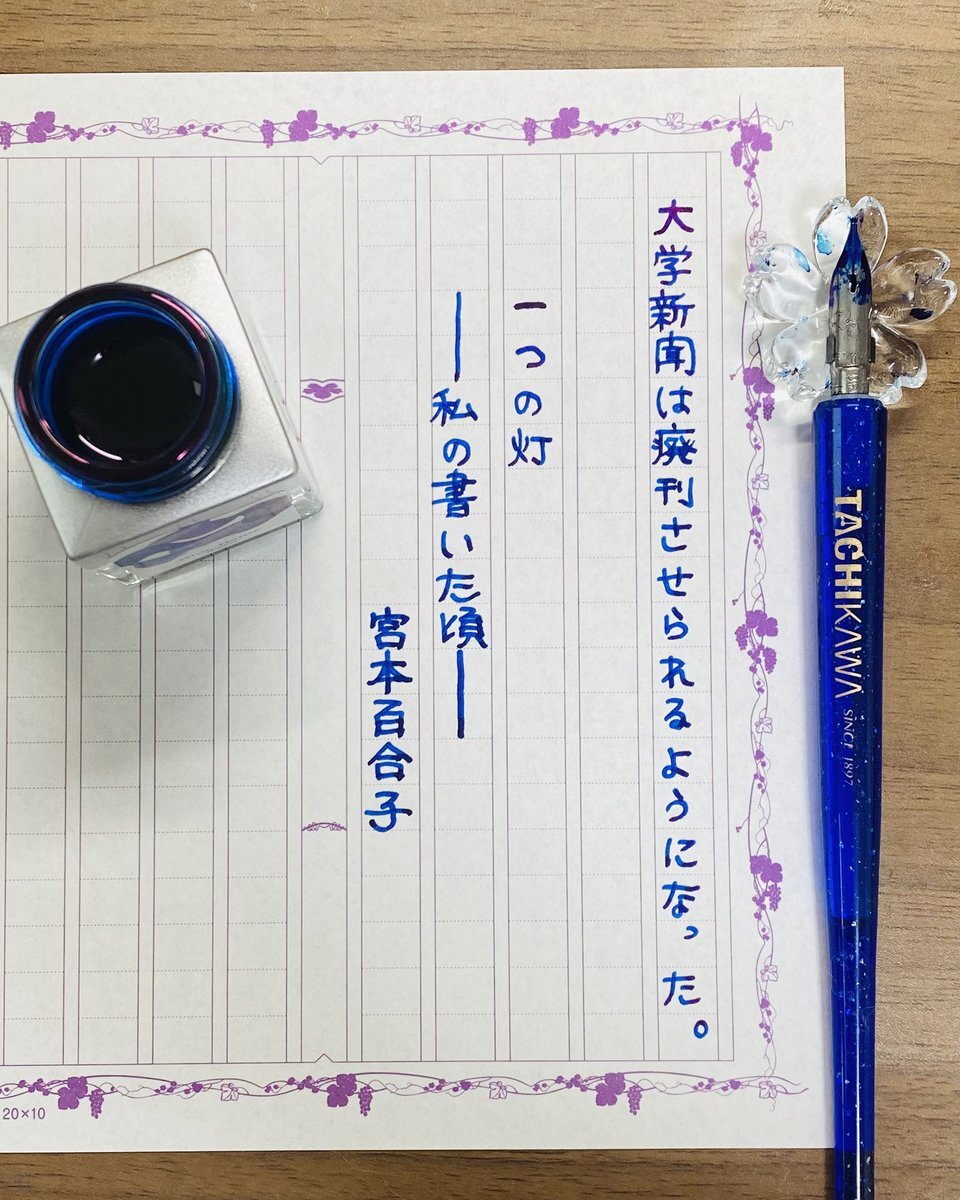 大学新聞は廃刊させられるようになった。
一つの灯
――私の書いた頃――
宮本百合子
TACHIKAWA SINCE 1897
20×10